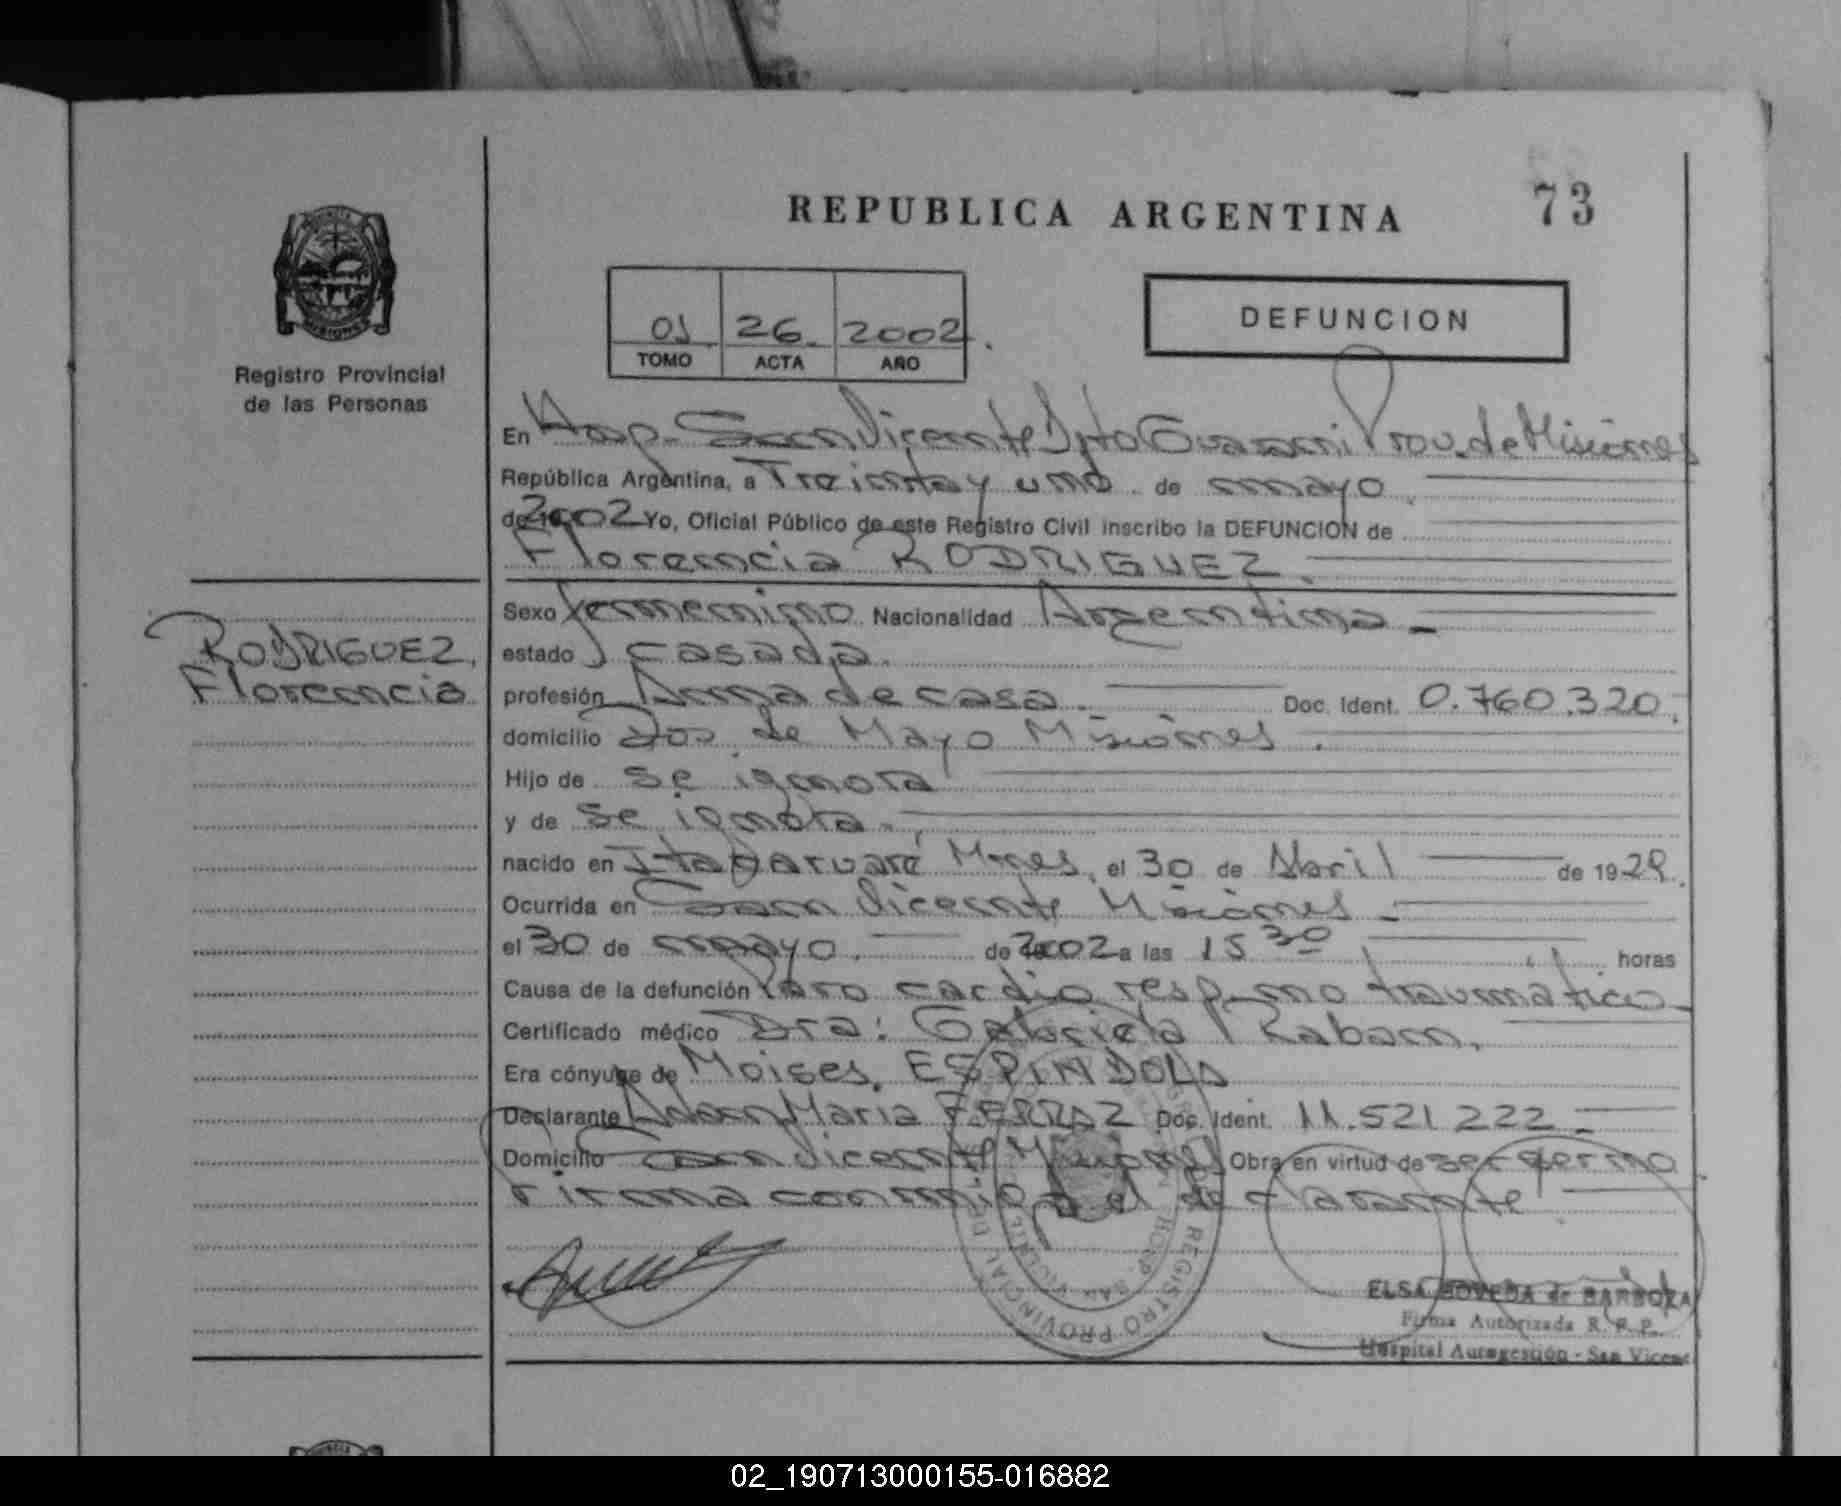 REPUBLICA ARGENTINA
73
MISIONES
Registro Provincial
de las Personas
01 26. 2002.
TOMO ACTA AÑO
DEFUNCION
En Hosp. San Vicente Dpto Guarani Prov. de Misiones
República Argentina, a Treinta y uno de mayo
de 2002 Yo, Oficial Público de este Registro Civil inscribo la DEFUNCION de
Florencia RODRIGUEZ.
RODRIGUEZ,
Florencia
Sexo femenino Nacionalidad Argentina
estado casada.
profesión Ama de casa. Doc. Ident. 0.760.320.
domicilio Dos de Mayo Misiones.
Hijo de se ignora
y de se ignora.
nacido en Mnes, el 30 de Abril de 1929.
Ocurrida en San Vicente Misiones
el 30 de mayo. de 2002 a las 15 30 horas
Causa de la defunción Paro cardio resp. no traumático
Certificado médico Dra: Gabriela Raban.
Era cónyuge de Moises, ESPINDOLA
Declarante Adan Maria FERRAZ Doc. Ident. 11.521.222
Domicilio San Vicente Misiones Obra en virtud de ser yerno
Firma conmigo el declarante
REGISTRO PROVINCIAL DE
HOSP. SAN VICENTE
ELSA BOVEDA de BARBOZA
Firma Autorizada R. P. P.
Hospital Autogestión - San Vicente
02_190713000155-016882